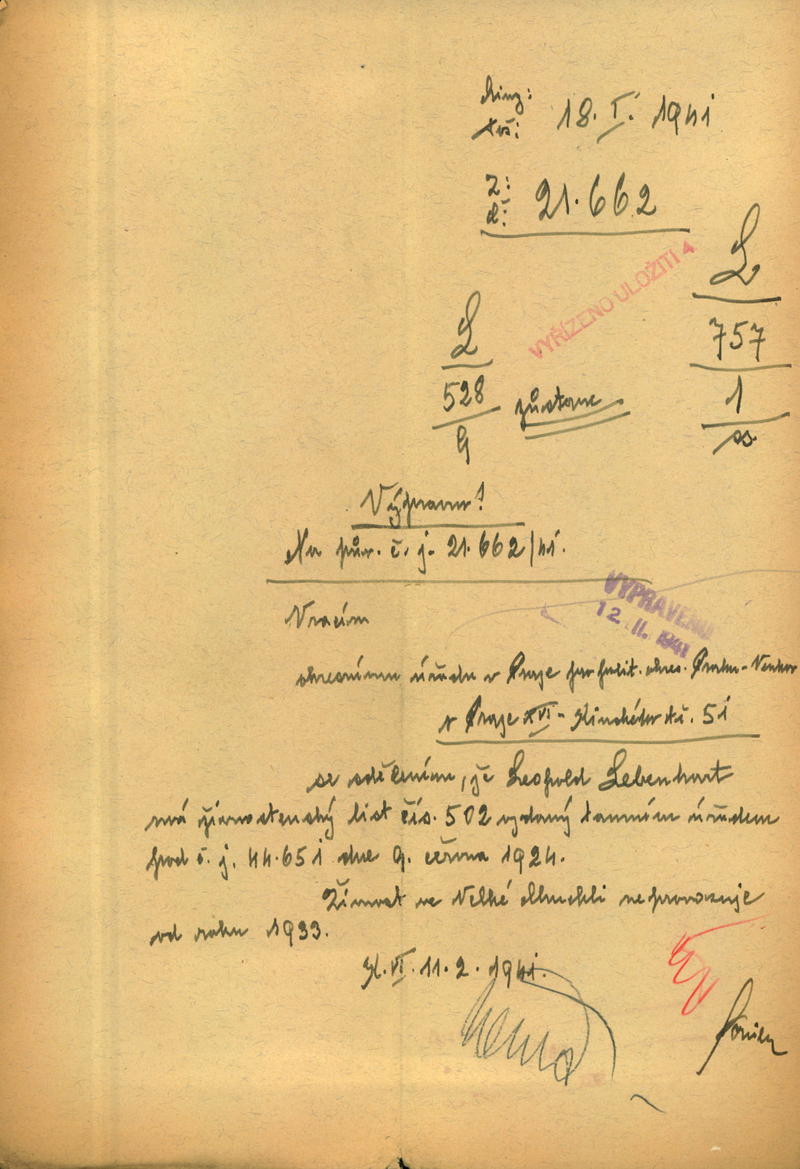 18. I. 1941
Z:
č: 21.662
VYŘÍZENO ULOŽITI 4
L
757
1
L
528 zůstane
9
Výpravna!
Na pův. č. j. 21.662/41.
VYPRAVENO
12. II. 1941
Vracím
okresnímu úřadu v Praze pro polit. okres. Praha-Venkov
v Praze XVI - Kinského tř. 51
se sdělením, že Leopold Lebenhart
má živnostenský list čís. 502 vydaný tamním úřadem
pod č. j. 44.651 dne 9. června 1924.
Živnost ve Velké Chuchli neprovozuje
od roku 1933.
VI. 11.2. 1941.